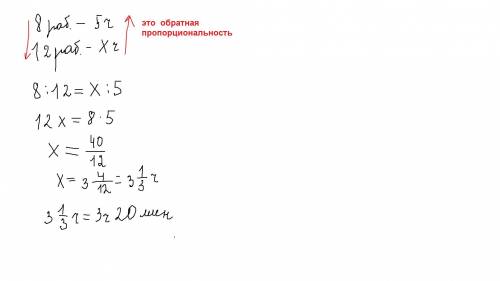 8 раб. – 5 ч
12 раб. – x ч
это обратная
пропорциональность
8 : 12 = x : 5
12 x = 8 · 5
x = 40/12
x = 3 4/12 = 3 1/3 ч
3 1/3 ч = 3ч 20 мин